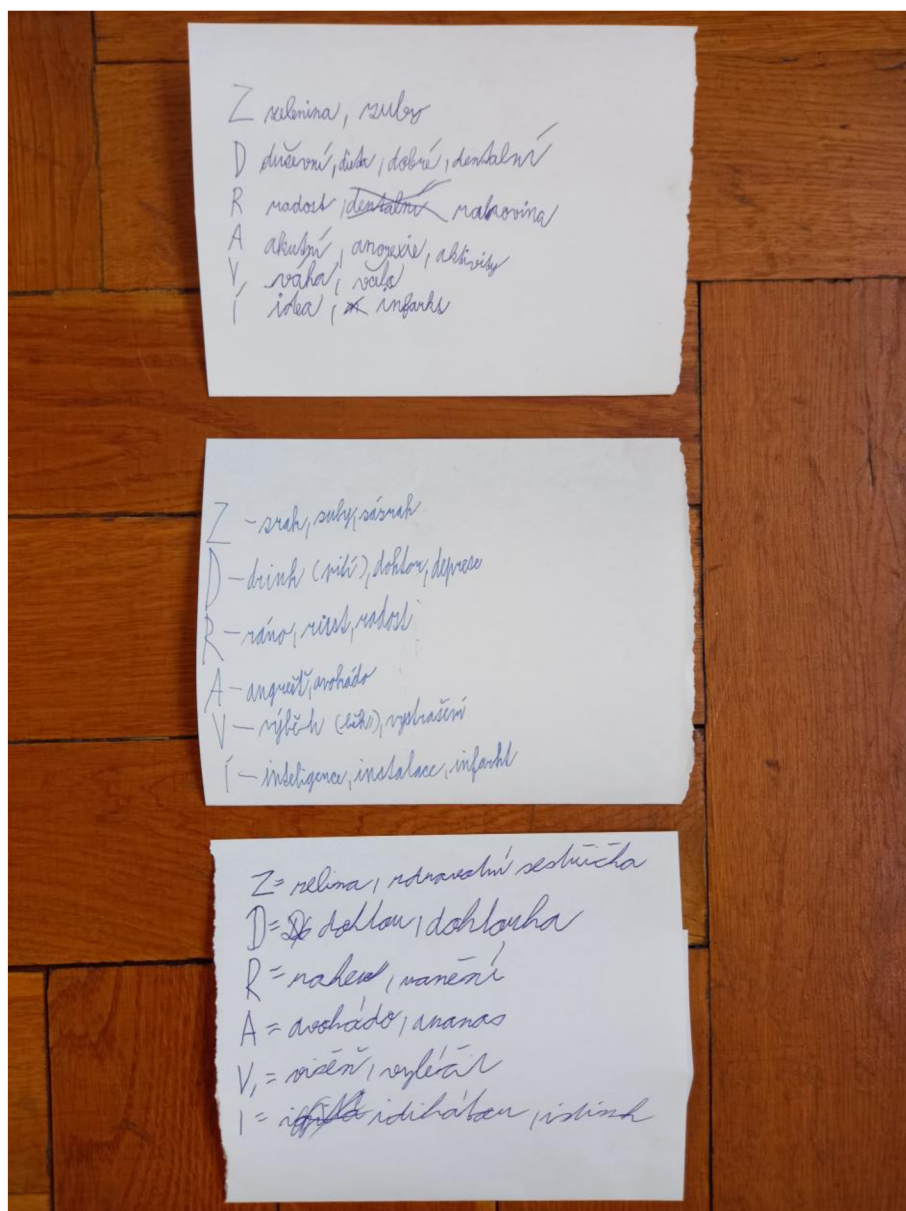 Z zelenina, zuby
D duševní, dieta, dobré, dentalní
R radost, dentalní rakovina
A akutní, anorexie, aktivity
V, váha, včela
Í idea, infarkt
Z - zrak, zuby, zázrak
D - drink (pití), doktor, deprese
R - ráno, růst, radost
A - angrešt, avokádo
V - výběh (běh), vystrašení
Í - inteligence, instalace, infarkt
Z = zelina, zdravotní sestřička
D = doktor, doktorka
R = ranění
A = avokádo, ananas
V, = višeň, vyléčit
I = indikátor, istinkt